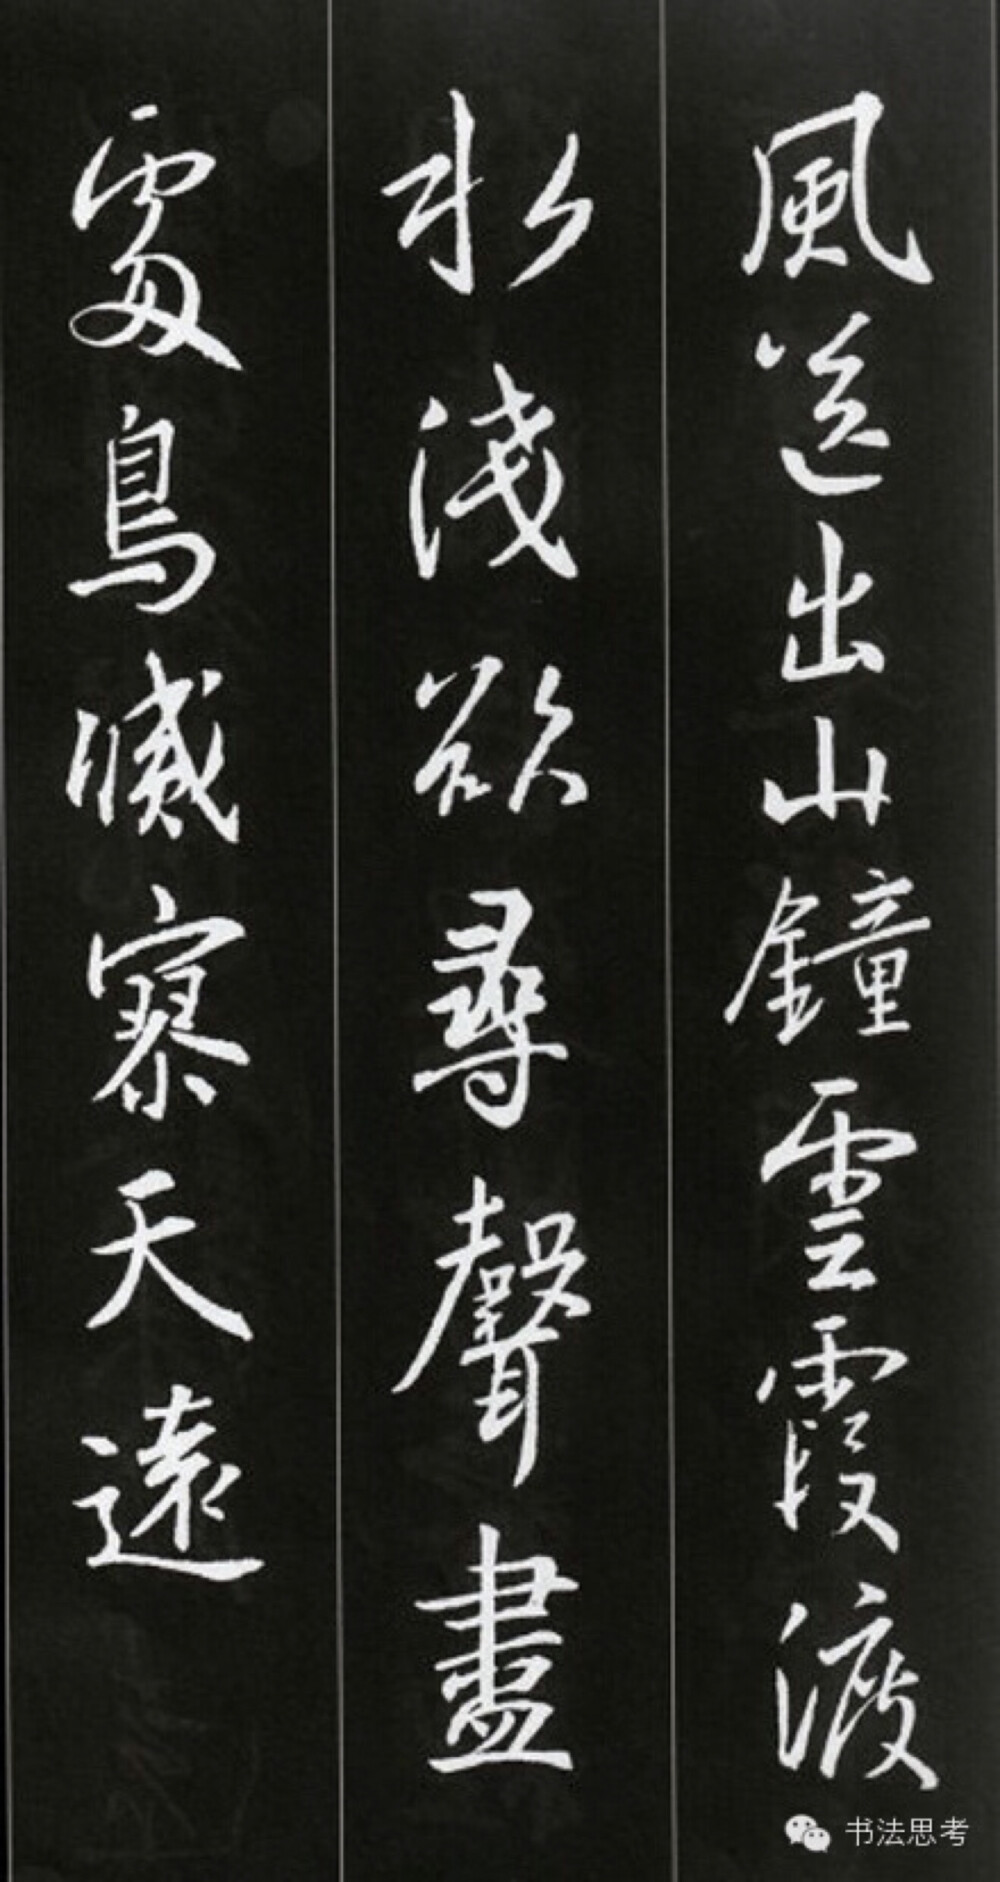 風送出山鐘雲霞渡
水淺欲尋聲盡
處鳥滅寥天遠
书法思考